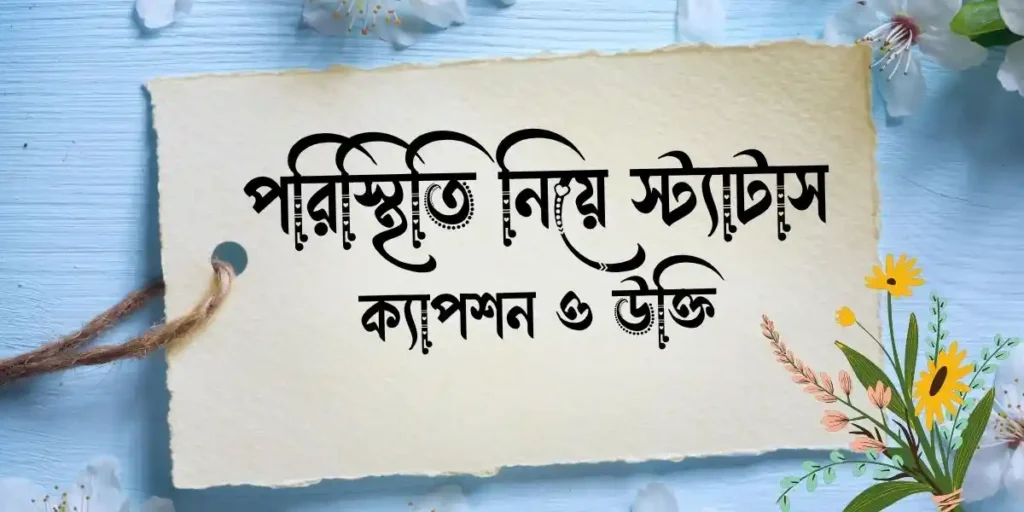 পরিস্থিতি নিয়ে স্ট্যাটাস
ক্যাপশন ও উক্তি